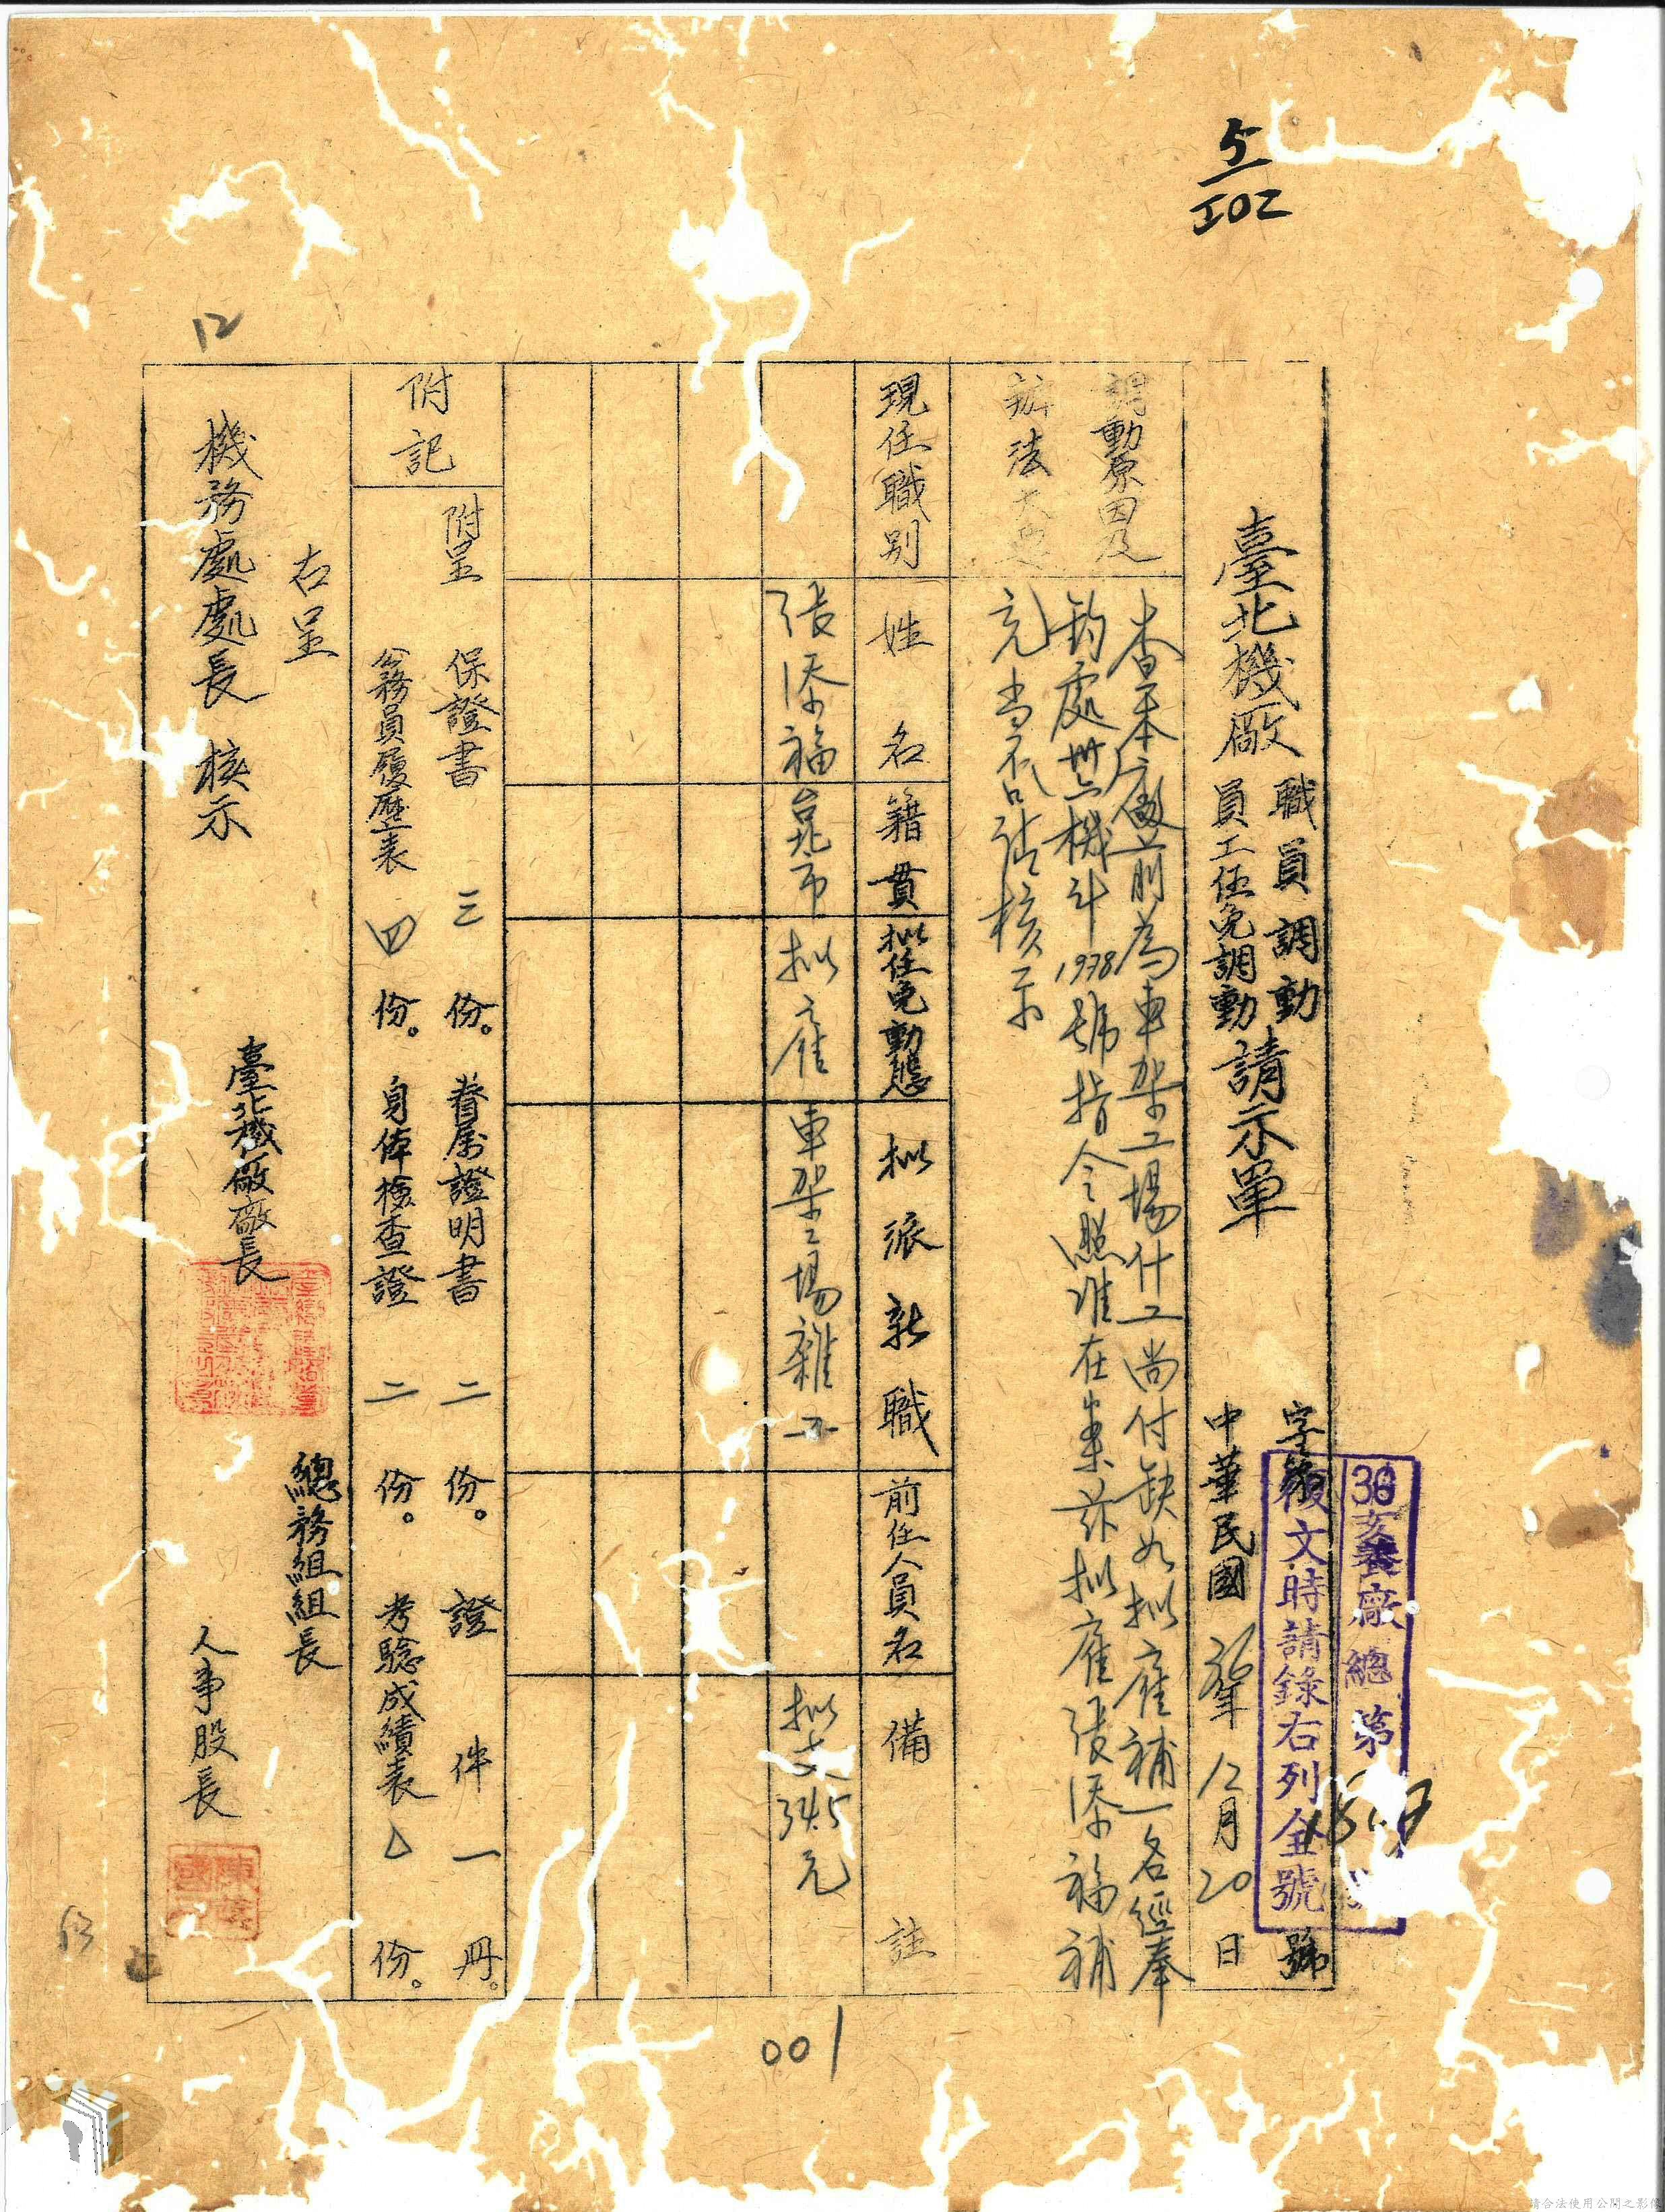 5/102
12
臺北機廠
職員調動
員工任免調動
請示單
字第 號
中華民國 36年 12月 20日
復文時請錄右列金號
廠總第
調動原因及
辦法
查本廠前為車架工場什工尚付缺如擬雇補一名經奉
鈞處卅六機斗1978號指令照准在案茲擬雇張添福補
充當否請核示
現任職別
姓名
籍貫
擬任免動態
擬派新職
前任人員名
備註
張添福
台北市
擬雇
車架工場雜工
擬支345元
附記
附呈 保證書 三 份。 眷屬證明書 二 份。 證件 一 冊。
公務員履歷表 四 份。 身体檢查證 二 份。 考驗成績表 份。
右呈
機務處處長 核示
臺北機廠廠長
總務組組長
人事股長
001
請合法使用公開之影像